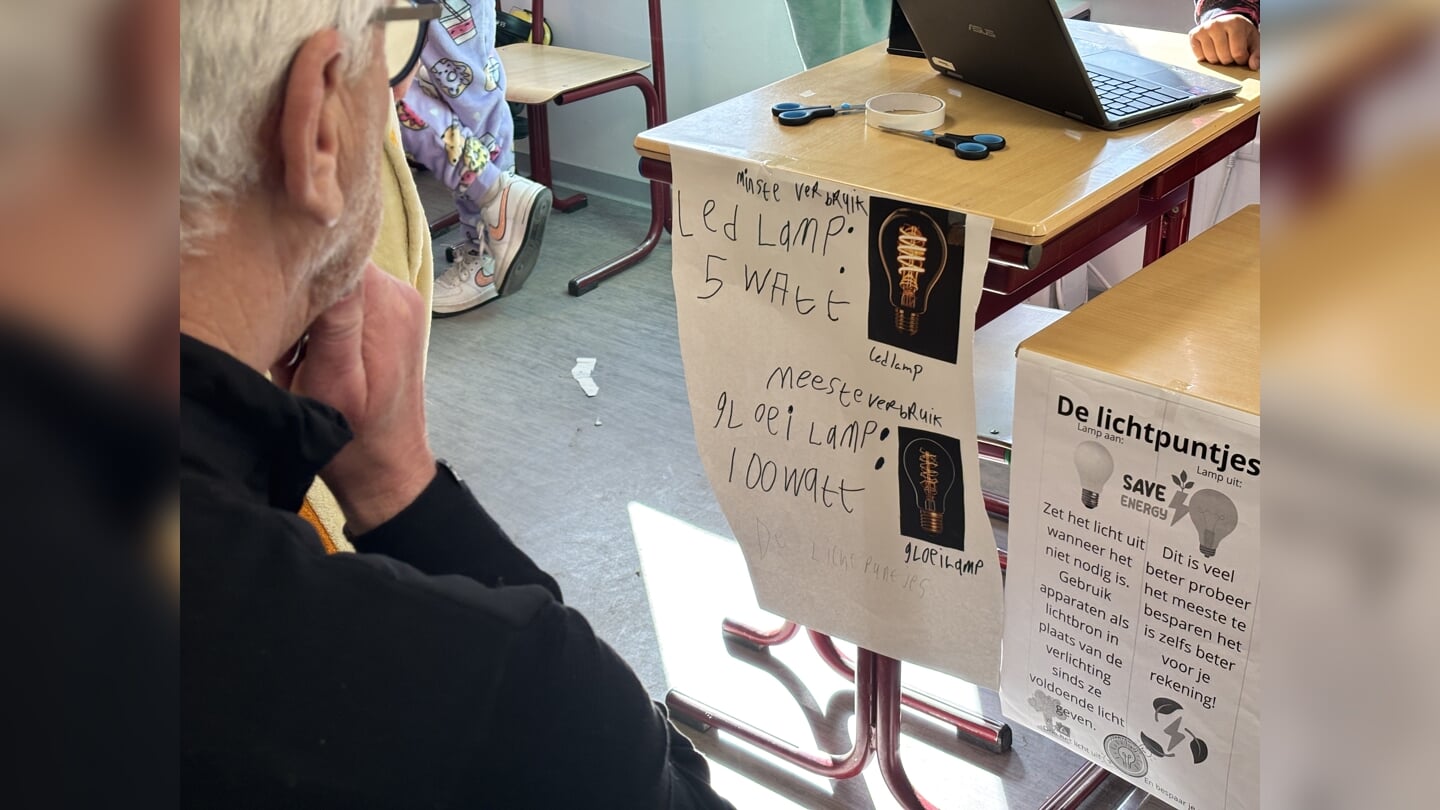 ASUS
minste verbruik
Led Lamp:
5 watt
Ledlamp
meeste verbruik
gloei Lamp:
100 watt
gloeilamp
De Lichtpuntjes
De lichtpuntjes
Lamp aan:
Lamp uit:
SAVE
ENERGY
Zet het licht uit
wanneer het
niet nodig is.
Gebruik
apparaten als
lichtbron in
plaats van de
verlichting
sinds ze
voldoende licht
geven.
Dit is veel
beter probeer
het meeste te
besparen het
is zelfs beter
voor je
rekening!
En bespaar je